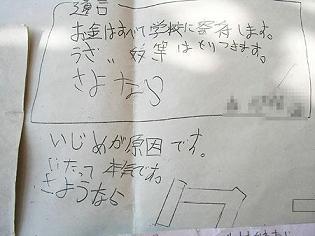 遺言
お金はすべて学校に寄付します。
うざい奴等はとりつきます。
さよなら
いじめが原因です。
いたって本気です。
さようなら